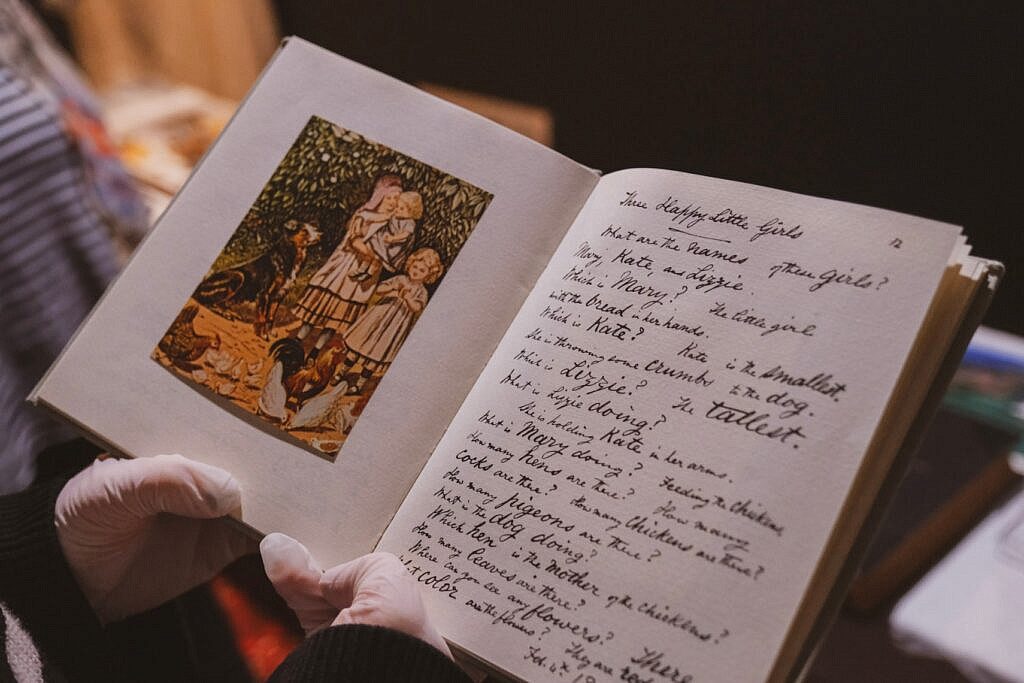 Three Happy Little Girls
12
What are the names of these Girls?
Mary, Kate, and Lizzie.
Which is Mary? The little girl
with the bread in her hands.
Which is Kate? Kate is the smallest.
She is throwing some crumbs to the dog.
Which is Lizzie? The tallest.
What is Lizzie doing?
She is holding Kate in her arms.
What is Mary doing? Feeding the chickens
How many hens are there? How many
cocks are there? How many chickens are there?
How many pigeons are there?
What is the dog doing?
Which hen is the mother of the chickens?
How many leaves are there?
Where can you see any flowers? There
color are the flowers? They are red
Feb. 4th